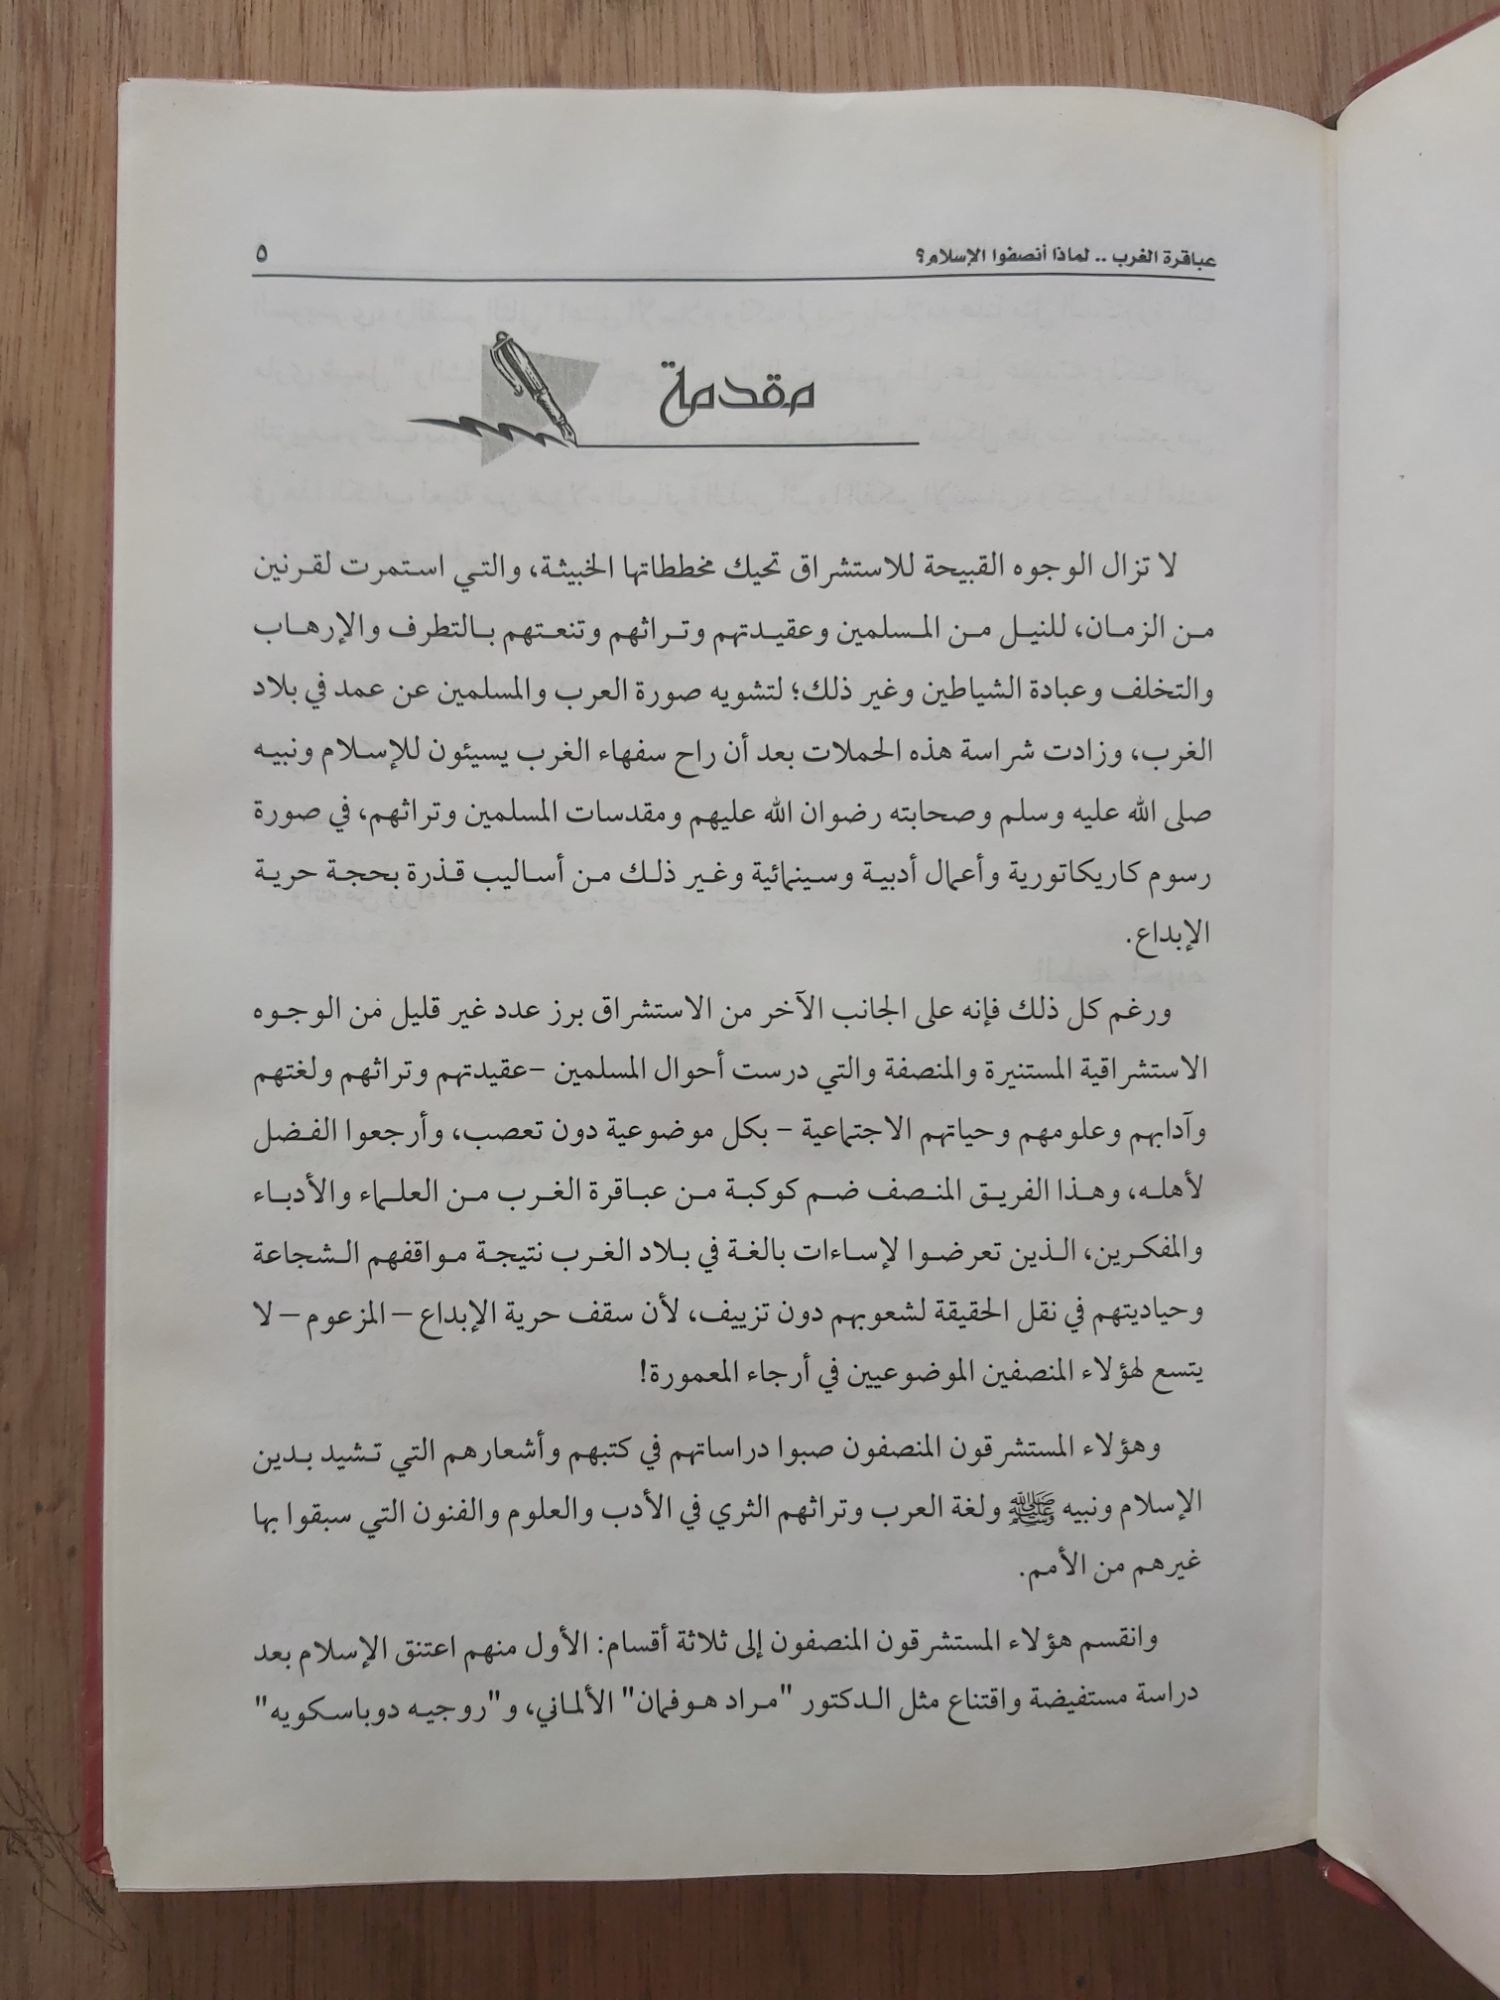 عباقرة الغرب .. لماذا أنصفوا الإسلام؟ ٥
مقدمة
لا تزال الوجوه القبيحة للاستشراق تحيك مخططاتها الخبيثة، والتي استمرت لقرنين
من الزمان، للنيل من المسلمين وعقيدتهم وتراثهم وتنعتهم بالتطرف والإرهاب
والتخلف وعبادة الشياطين وغير ذلك؛ لتشويه صورة العرب والمسلمين عن عمد في بلاد
الغرب، وزادت شراسة هذه الحملات بعد أن راح سفهاء الغرب يسيئون للإسلام ونبيه
صلى الله عليه وسلم وصحابته رضوان الله عليهم ومقدسات المسلمين وتراثهم، في صورة
رسوم كاريكاتورية وأعمال أدبية وسينمائية وغير ذلك من أساليب قذرة بحجة حرية
الإبداع.
ورغم كل ذلك فإنه على الجانب الآخر من الاستشراق برز عدد غير قليل من الوجوه
الاستشراقية المستنيرة والمنصفة والتي درست أحوال المسلمين –عقيدتهم وتراثهم ولغتهم
وآدابهم وعلومهم وحياتهم الاجتماعية – بكل موضوعية دون تعصب، وأرجعوا الفضل
لأهله، وهذا الفريق المنصف ضم كوكبة من عباقرة الغرب من العلماء والأدباء
والمفكرين، الذين تعرضوا لإساءات بالغة في بلاد الغرب نتيجة مواقفهم الشجاعة
وحياديتهم في نقل الحقيقة لشعوبهم دون تزييف، لأن سقف حرية الإبداع – المزعوم – لا
يتسع لهؤلاء المنصفين الموضوعيين في أرجاء المعمورة!
وهؤلاء المستشرقون المنصفون صبوا دراساتهم في كتبهم وأشعارهم التي تشيد بدين
الإسلام ونبيه ﷺ ولغة العرب وتراثهم الثري في الأدب والعلوم والفنون التي سبقوا بها
غيرهم من الأمم.
وانقسم هؤلاء المستشرقون المنصفون إلى ثلاثة أقسام: الأول منهم اعتنق الإسلام بعد
دراسة مستفيضة واقتناع مثل الدكتور "مراد هوفمان" الألماني، و"روجيه دوباسكويه"